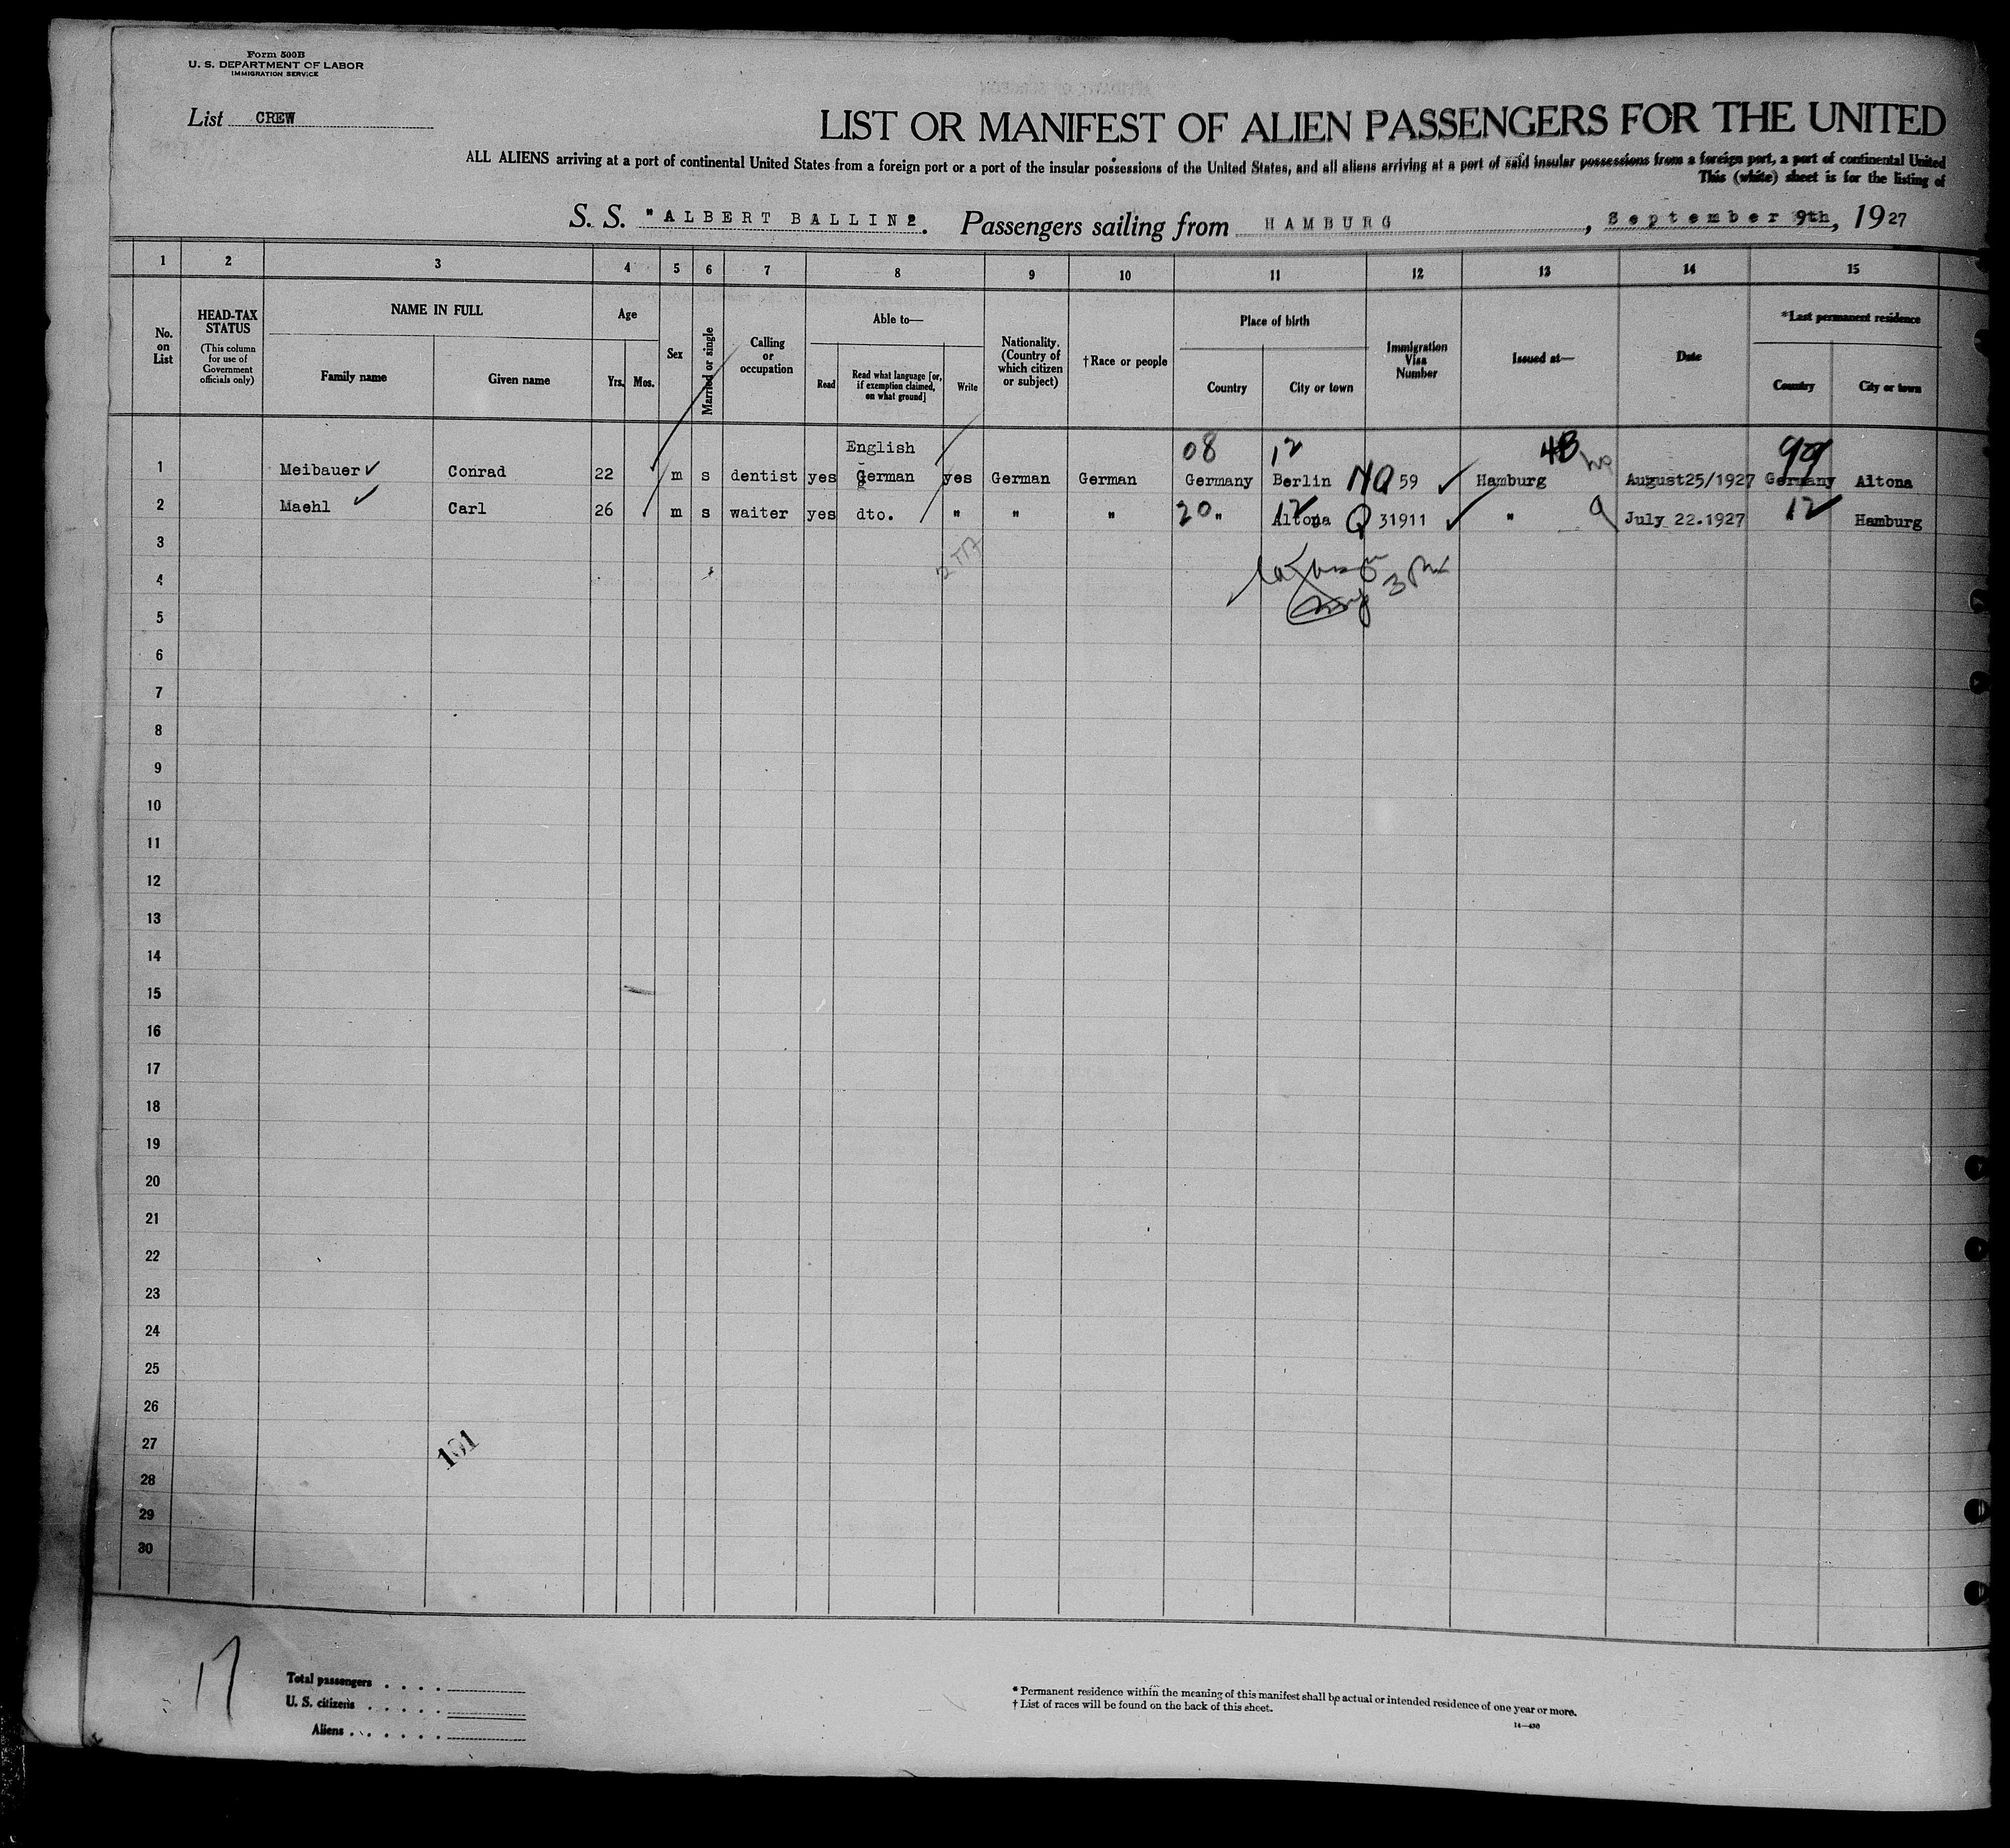 Form 500B
U. S. DEPARTMENT OF LABOR
IMMIGRATION SERVICE
List CREW
LIST OR MANIFEST OF ALIEN PASSENGERS FOR THE UNITED
ALL ALIENS arriving at a port of continental United States from a foreign port or a port of the insular possessions of the United States, and all aliens arriving at a port of said insular possessions from a foreign port, a port of continental United
This (white) sheet is for the listing of
S. S. "ALBERT BALLIN2. Passengers sailing from HAMBURG, September 9th, 1927
1 2 3 4 5 6 7 8 9 10 11 12 13 14 15
No. on List
HEAD-TAX STATUS
(This column for use of Government officials only)
NAME IN FULL
Family name Given name
Age
Yrs. Mos.
Sex
Married or single
Calling or occupation
Able to—
Read
Read what language [or, if exemption claimed, on what ground]
Write
Nationality. (Country of which citizen or subject)
†Race or people
Place of birth
Country City or town
Immigration Visa Number
Issued at—
Date
*Last permanent residence
Country City or town
English 08 12 48 99
1 Meibauer Conrad 22 m s dentist yes German yes German German Germany Berlin NQ 59 Hamburg August25/1927 Germany Altona
2 Maehl Carl 26 m s waiter yes dto. " " " 20 " 12 Altona Q 31911 " July 22.1927 12 Hamburg
3
4
5
6
7
8
9
10
11
12
13
14
15
16
17
18
19
20
21
22
23
24
25
26
27
101
28
29
30
17
Total passengers . . . .
U. S. citizens . . . . .
Aliens . . . . . .
* Permanent residence within the meaning of this manifest shall be actual or intended residence of one year or more.
† List of races will be found on the back of this sheet.
14—430